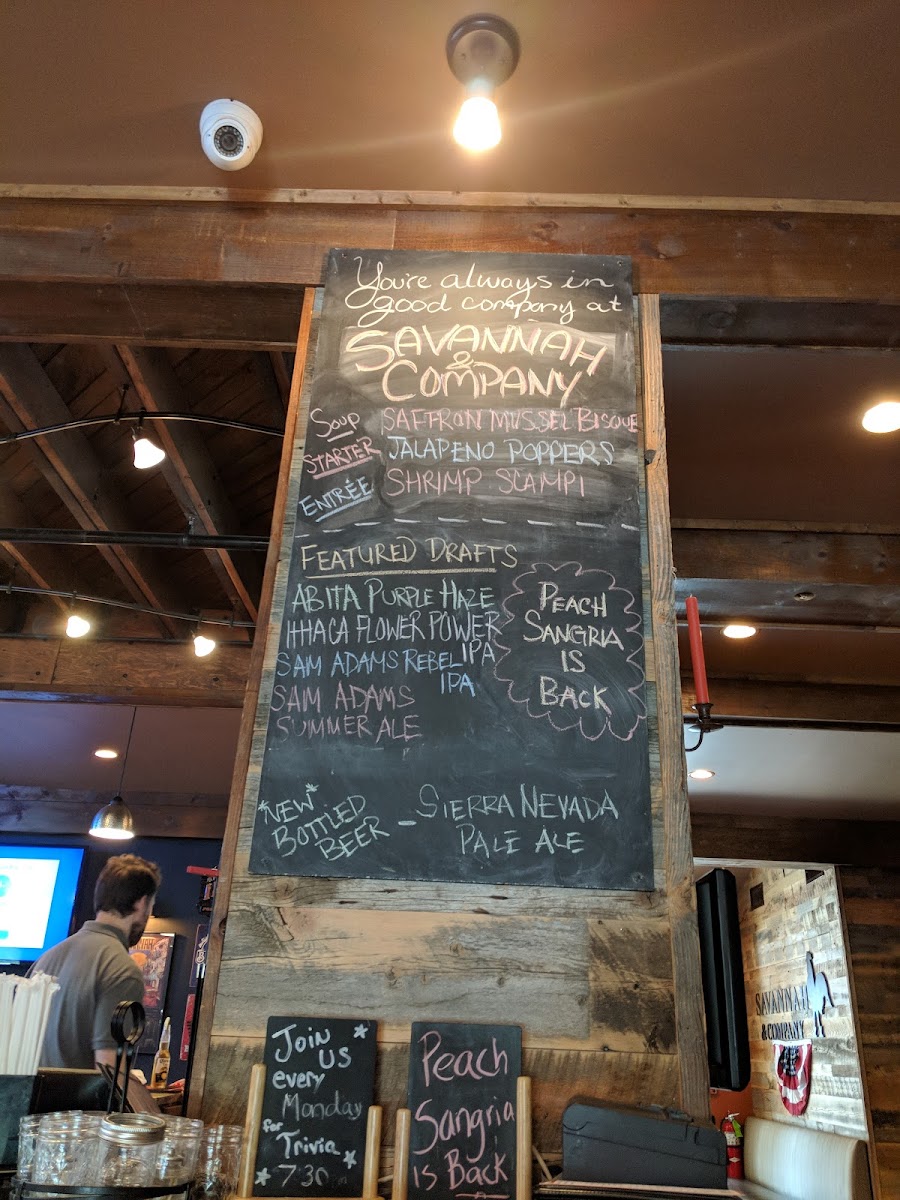 You're always in
good company at
SAVANNAH
&
COMPANY
SOUP SAFFRON MUSSEL BISQUE
STARTER JALAPENO POPPERS
ENTRÉE SHRIMP SCAMPI
FEATURED DRAFTS
ABITA PURPLE HAZE
ITHACA FLOWER POWER
IPA
SAM ADAMS REBEL
IPA
SAM ADAMS
SUMMER ALE
PEACH
SANGRIA
IS
BACK
*NEW*
BOTTLED
BEER
- SIERRA NEVADA
PALE ALE
SAVANNAH
& COMPANY
Join
us
every
Monday
for
Trivia
7:30
Peach
Sangria
is Back